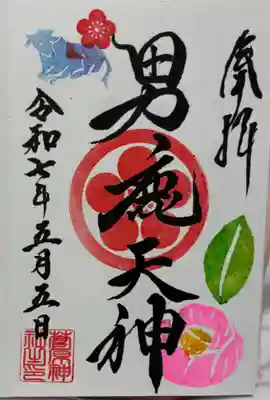 奉拝
男鹿天神
令和七年五月五日
菅原神社之印